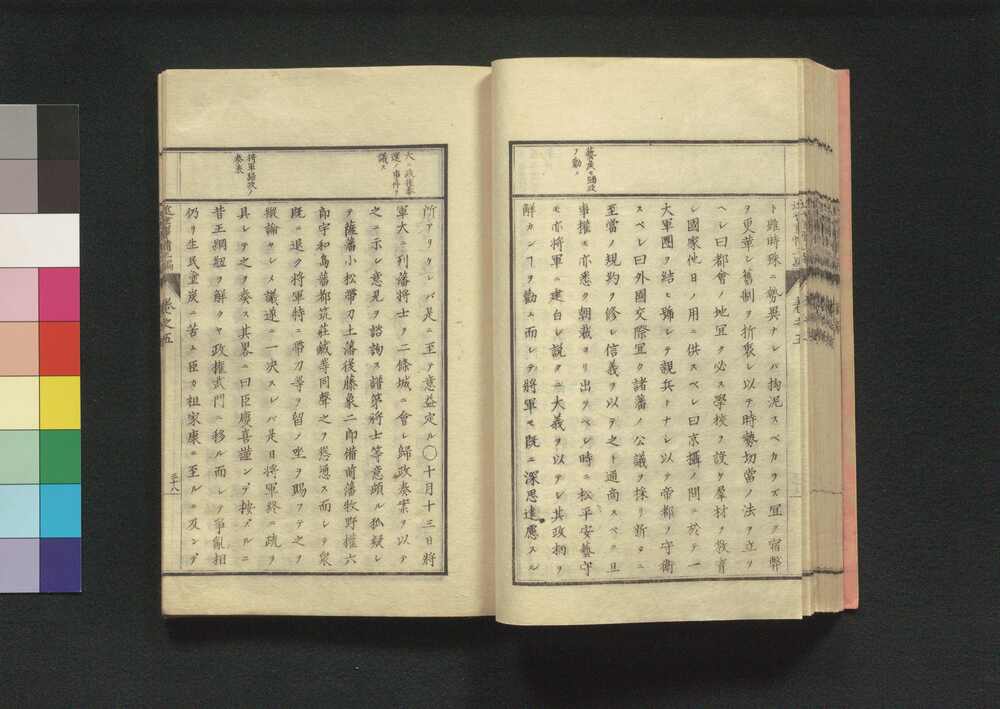 藝侯モ歸政
ヲ勸ム
ト雖時殊ニ勢異ナレバ拘泥スベカラズ宜ク宿弊
ヲ更革シ舊制ヲ折衷シ以テ時勢切當ノ法ヲ立ツ
ベシ曰都會ノ地宜ク必ス學校ヲ設ケ羣材ヲ敎育
シ國家他日ノ用ニ供スベシ曰京攝ノ間ニ於テ一
大軍團ヲ結ヒ號シテ親兵トナシ以テ帝都ノ守衛
スベシ曰外國交際宜ク諸藩ノ公議ヲ採リ新タニ
至當ノ規約ヲ修シ信義ヲ以テ之ト通商スベク且
事權モ亦悉ク朝裁ヨリ出ヅベシ時ニ松平安藝守
モ亦將軍ニ建白シ說クニ大義ヲ以テシ其政柄ヲ
解カンヿヲ勸ム而シテ將軍モ既ニ深思遠慮スル
大ニ政權奉
還ノ事件ヲ
議ス
將軍歸政ノ
奏表
所アリケレバ是ニ至テ意益定ル〇十月十三日將
軍大ニ列藩將士ヲ二條城ニ會シ歸政奏案ヲ以テ
之ニ示シ意見ヲ諮詢ス譜第將士等意頗ル狐疑シ
ヲ薩藩小松帶刀土藩後藤象二郎備前藩牧野權六
郎宇和島藩都筑莊藏等同聲之ヲ慫慂ス而シテ衆
既ニ退ク將軍特ニ帶刀等ヲ留メ坐ヲ賜フテ之ヲ
縱論セシメ議遂ニ一決スレバ是日將軍終ニ疏ヲ
具シテ之ヲ奏ス其畧ニ曰臣慶喜謹ンデ按ズルニ
昔王綱紐ヲ解クヤ政權武門ニ移ル而シテ爭亂相
仍リ生民塗炭ニ苦ム臣カ祖家康ニ至ルニ及ンデ
卷之五
三十八